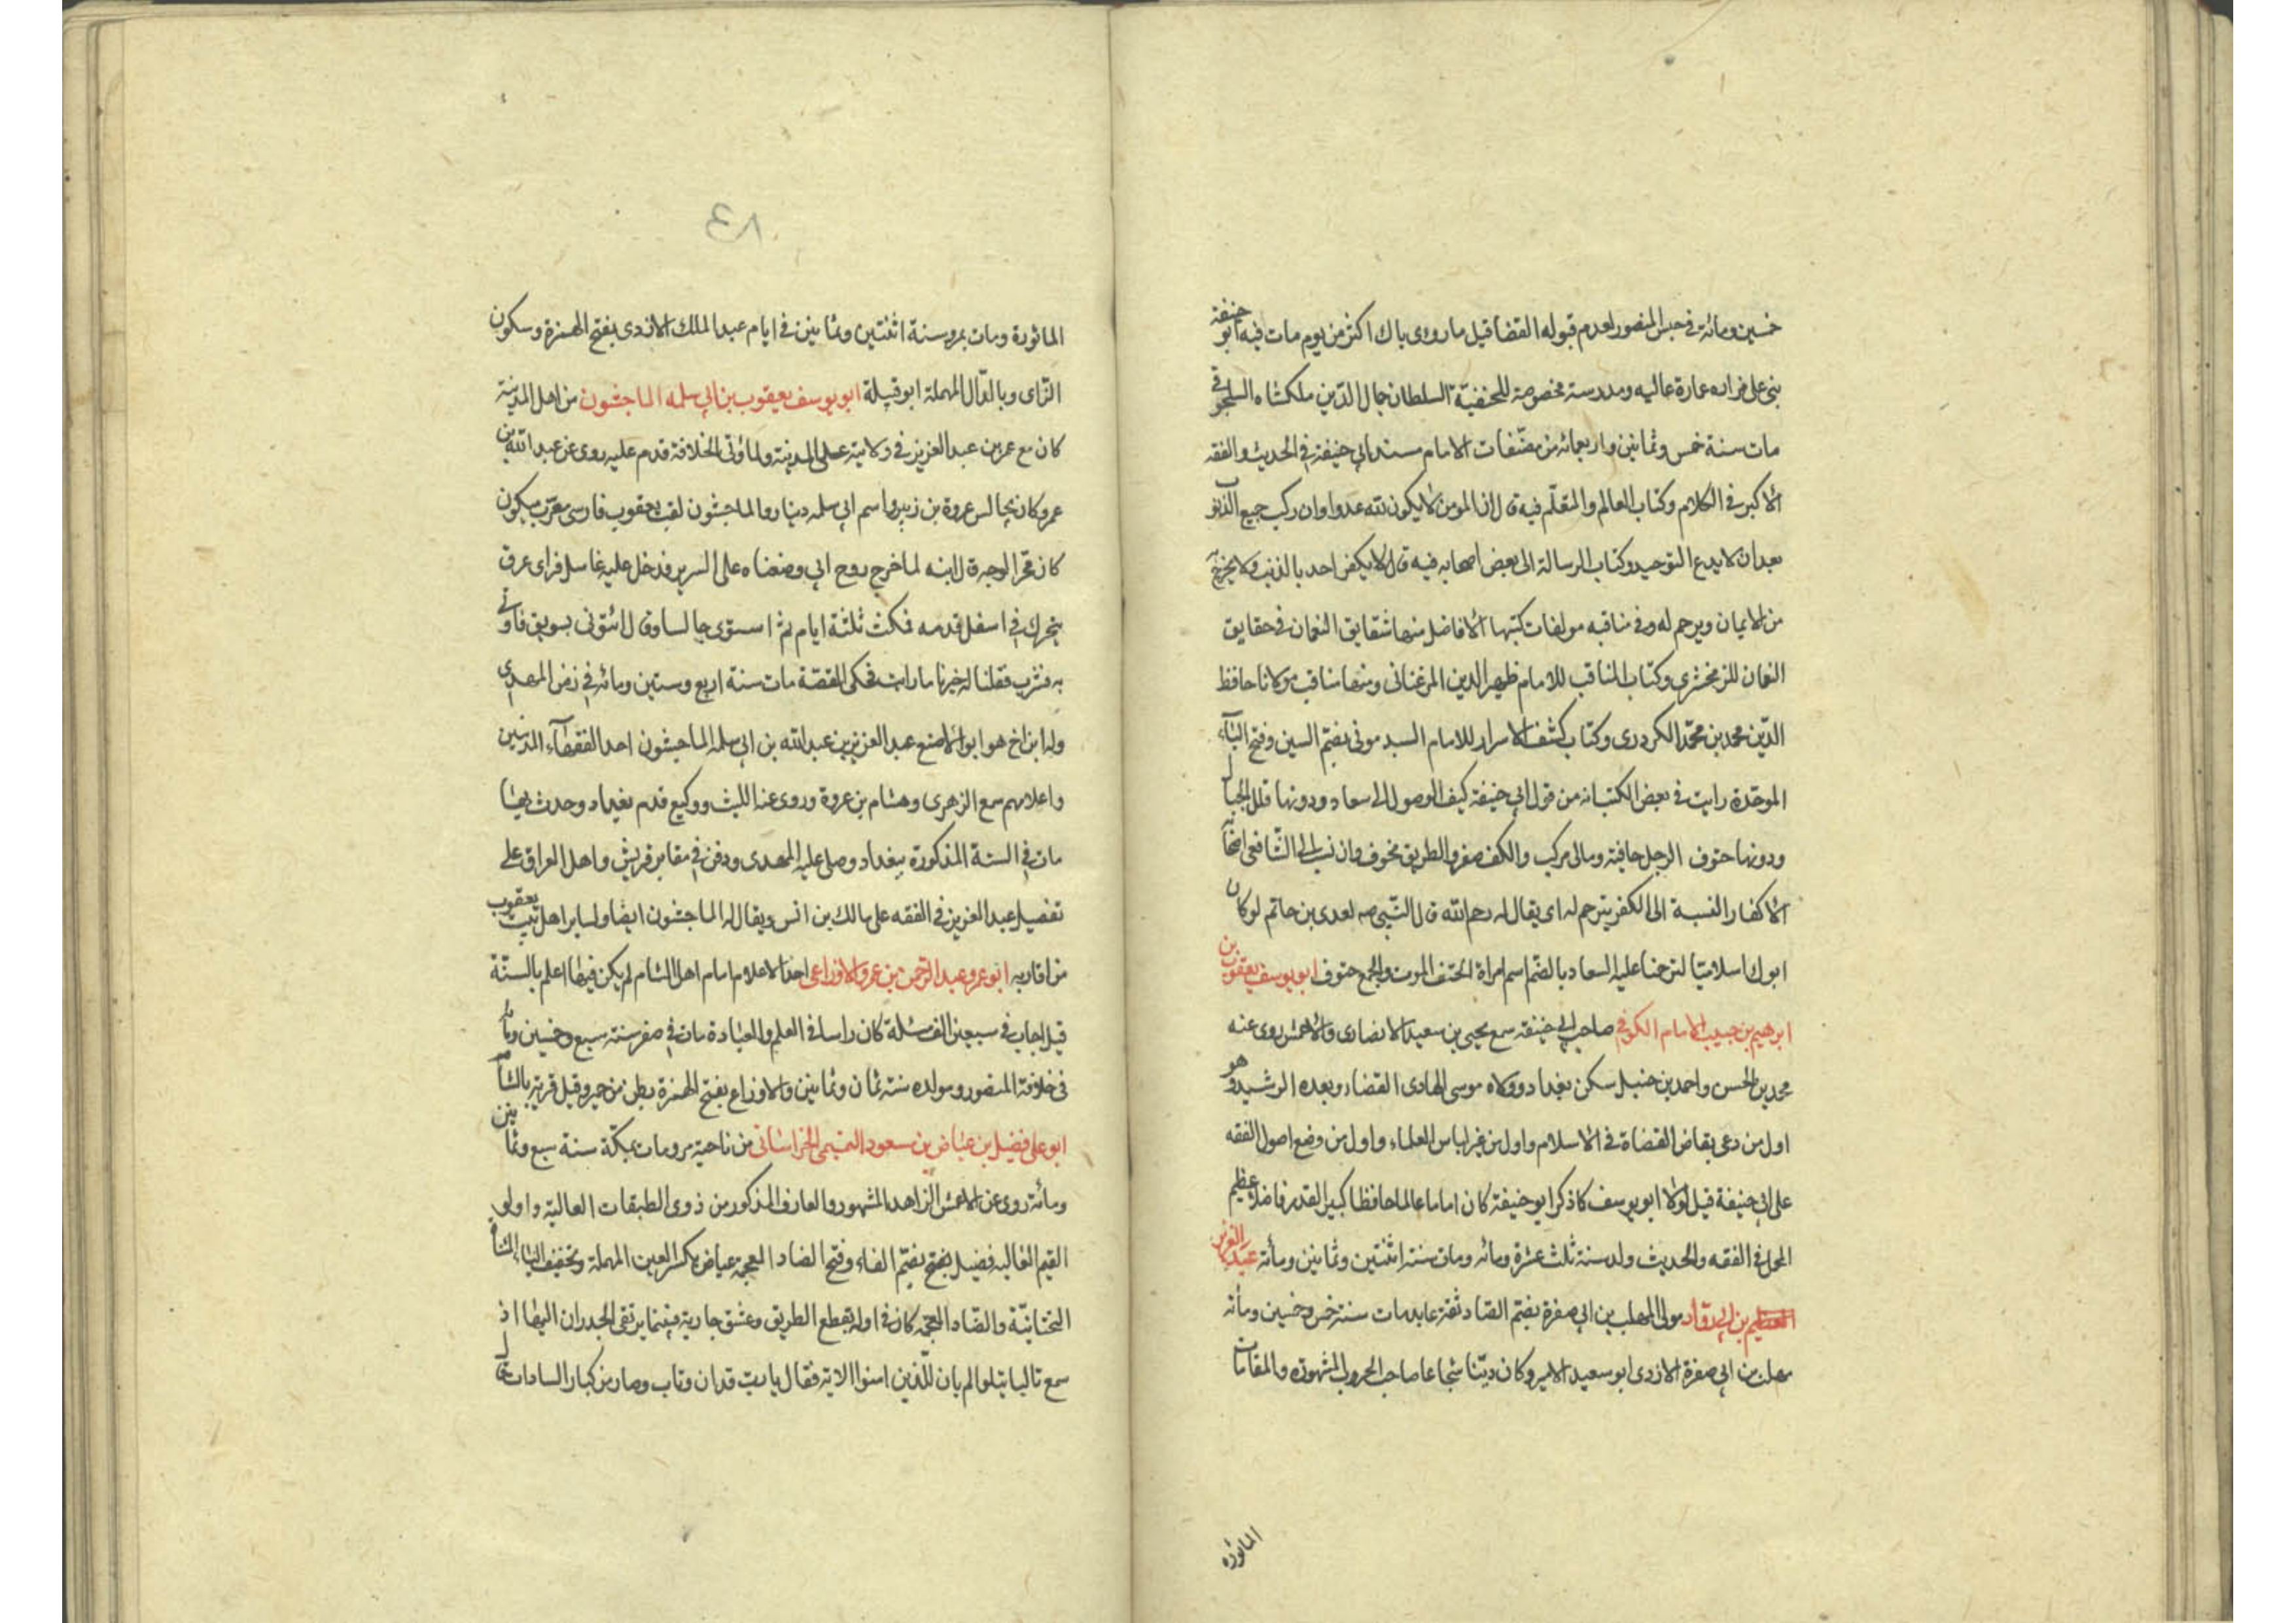 خمسين ومائة في حبس المنصور لعدم قبوله القضا قيل ما روى باك اكثر من يوم مات فيه ابو حنيفة
بنى على مزاره عمارة عاليه ومدرسة مخصوصة للحنفيّة السلطان جلال الدّين ملكشاه السلجوقي
مات سنة خمس وثمانين واربعمائه من مصنّفات الامام مسند ابي حنيفة في الحديث والفقه
الاكبر في الكلام وكتاب العالم والمتعلّم فيه قال ان المومن لا يكون لله عدوا وان ركب جميع الذنو
بعد ان لا يدع التوحيد وكتاب الرسالة الى بعض اصحابه فيه قال لا يكفر احد بالذنب ولا يخرج
من الايمان ويرحم له وفي مناقبه مولفات كتبها الافاضل منها شقايق النعمان في حقايق
النعمان للزمخشري وكتاب المناقب للامام ظهير الدين المرغناني ومنها مناقب مولانا حافظ
الدّين محمد بن محمّد الكردري وكتاب كشف الاسرار للامام السبدمونى بضمّ السين وفتح البآء
الموحّدة رايت في بعض الكتب انه من قول ابي حنيفة كيف الوصول الى سعاد ودونها قلل الجبال
ودونها حتوف الرجل حافية ومالى مركب والكف صفر والطريق مخوف وان نسب الى الشّافعى ايضآ
الاكفار النسبة الى الكفر يترحم له اى يقال له رحم الله قال النّبي صه لعدى بن حاتم لو كان
ابوك اسلاميّا لترحمنا عليه السعاد بالضمّ اسم امراة الحتف الموت والجمع حتوف ابو يوسف يعقوب بن
ابرهيم بن حبيب الامام الكوفي صاحب ابي حنيفه سمع يحيى بن سعيد الانصارى والاعمش روى عنه
محمد بن الحسن واحمد بن حنبل سكن بغداد وولاه موسى الهادى القضاء وبعده الرشيد وهو
اول من دعى بقاضى القضاة في الاسلام واول من غير لباس العلماء واول من وضع اصول الفقه
على ابي حنيفة قيل لولا ابو يوسف ما ذكر ابو حنيفة كان اماما عالما حافظا كبير القدر فاضلا عظيم
المحل في الفقه والحديث ولد سنة ثلث عشرة ومائه ومات سنة اثنتين وثمانين ومأئة عبد العزيز
بن ابي روّاد مولى المهلب بن ابي صفرة بضمّ الصّاد ثقة عابد مات سنة خمس وخمسين ومأئه
مهلب بن ابي صفرة الازدى ابو سعيد الامير وكان ديّنا شجاعا صاحب الحروب المشهوره والمقامات
الماثوره
٨٤
الماثورة ومات بمرو سنة اثنتين وثمانين في ايام عبد الملك الازدى بفتح الهمزة وسكون
الزّاى وبالدّال المهملة ابو قبيلة ابو يوسف يعقوب بن ابي سلمه الماجشون من اهل المدينة
كان مع عمر بن عبد العزيز في ولايته على المدينة ولما وُلى الخلافة قدم عليه روى عن عبد الله بن
عمر وكان يجالس عروة بن زبير واسم ابي سلمه دينار والماجشون لقب يعقوب فارسى معرّب ميكون
كان محمّر الوجه قال ابنه لما خرج روح ابي وضعناه على السرير فدخل عليه غاسل فراى عرق
يتحرك في اسفل قدمه فمكث ثلثة ايام ثم استوى جالسا وقال ائتونى بسويق فاتى
به فشرب فقلنا له خبرنا ما رايت فحكى القصّة مات سنة اربع وستين ومائه في زمن المهدي
وله ابن اخ هو ابو الاصبغ عبد العزيز بن عبد الله بن ابي سلمه الماجشون احد الفقهآء المدنيين
واعلامهم سمع الزهرى وهشام بن عروة وروى عنه الليث ووكيع قدم بغداد وحدث بها
مات في السنة المذكورة ببغداد وصلى عليه المهدى ودفن في مقابر قريش واهل العراق على
تفضيل عبد العزيز في الفقه على مالك بن انس ويقال له الماجشون ايضا ولساير اهل بيت يعقوب
من اقاربه ابو عمرو عبد الرّحمن بن عمرو الاوزاعى احد الاعلام امام اهل الشام لم يكن فيها اعلم بالسنّة
قيل اجاب في سبعين الف مسئلة كان راسا في العلم والعبادة مات في صفر سنة سبع وخمسين ومأئه
في خلافة المنصور ومولده سنة ثمان وثمانين والاوزاع بفتح الهمزة بطن من حمير وقيل قرية بالشآم
ابو على فضيل بن عياض بن سعود التميمى الخراسانى من ناحية مرو مات بمكّة سنة سبع وثمانين
ومأئة روى عن الاعمش الزاهد المشهور والعارف المذكور من ذوى الطبقات العاليّة واولى
القيم الغاليه فضيل بضمّ الفاء وفتح الضاد المعجمة عياض بكسر العين المهملة وتخفيف الياء المثناة
التحتانيّة والضّاد المعجمه كان في اوله يقطع الطريق وعشق جارية فبينما يرتقى الجدران اليها اذ
سمع تاليا يتلو الم يان للّذين امنوا الاية فقال يا ربّ قد ان وتاب وصار من كبار السادات قال